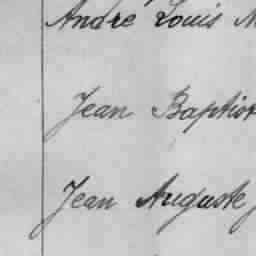 André Louis
Jean Baptist
Jean Auguste